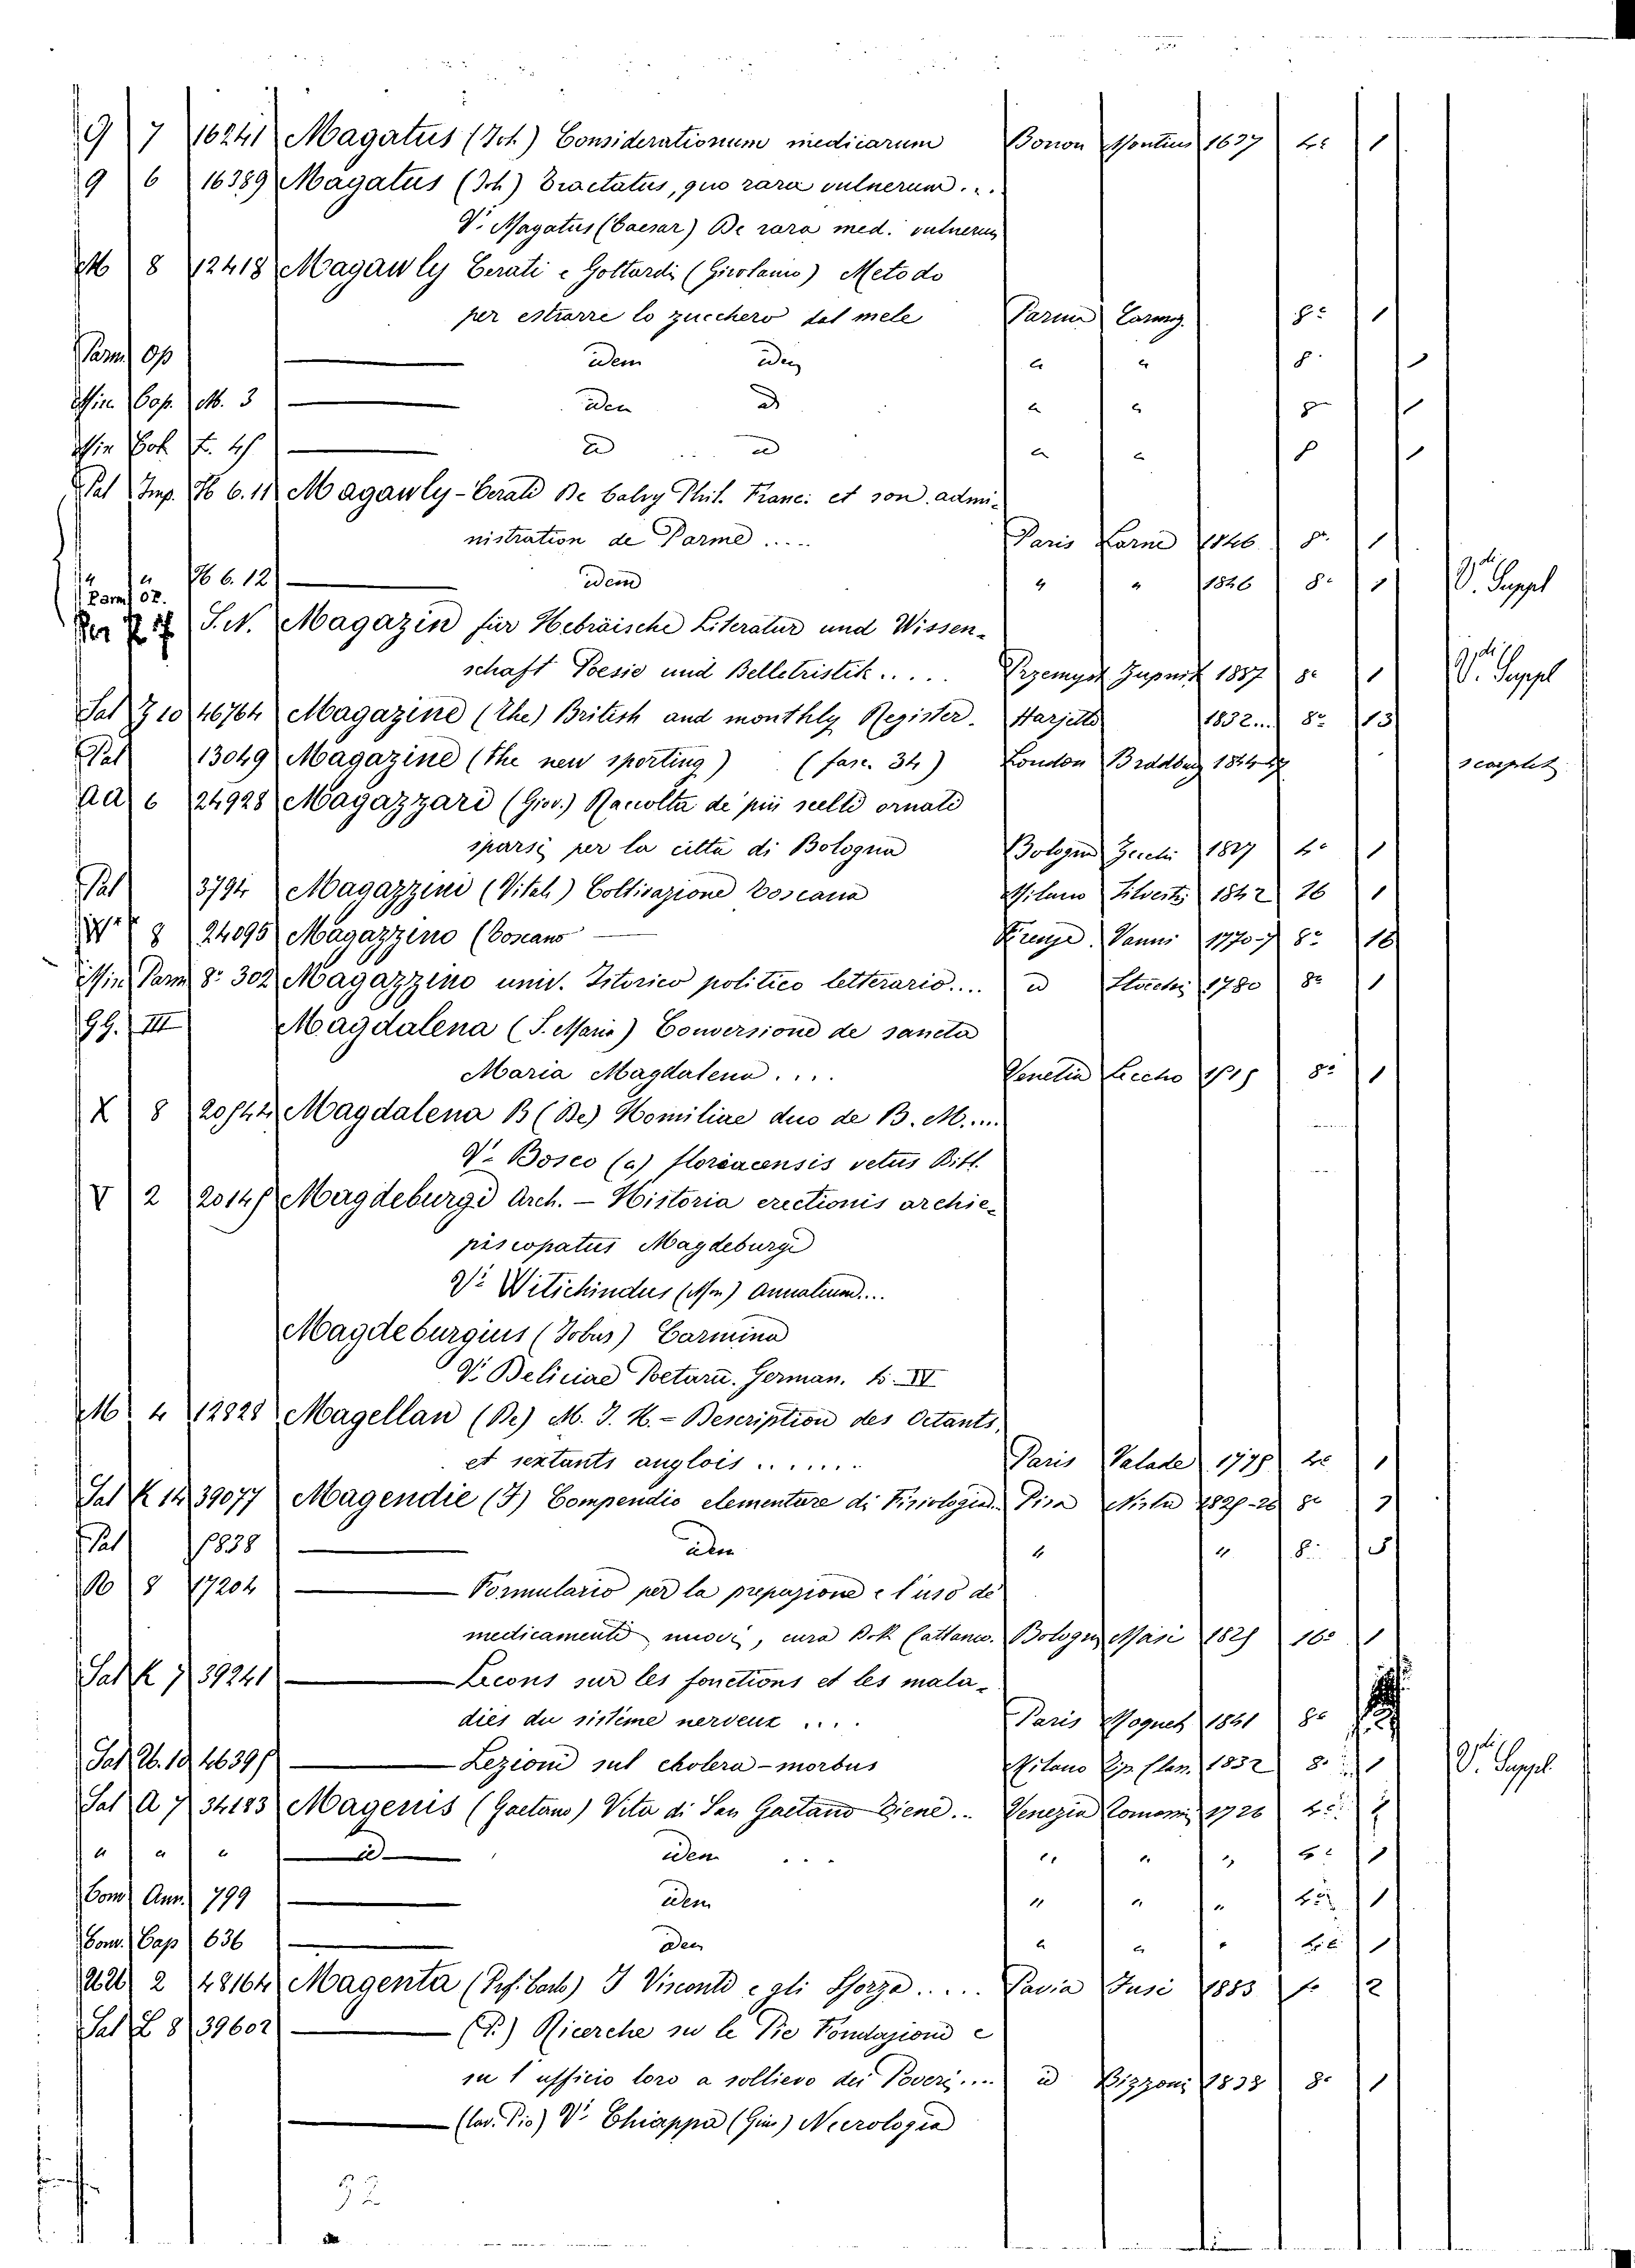 9 7 16241 Magatus (Joh.) Considerationum medicarum Bonon Montius 1637 4º 1
9 6 16389 Magatus (Joh) Tractatus, quo rara vulnerum...
V. Magatus (Caesar) De rara med. vulnerum
M 8 12418 Magawly Cerati e Gottardi (Girolamo) Metodo
per estrarre lo zucchero dal mele Parma Carmig. 8º 1
Parm Op idem idem " " 8º 1
Min Cap. M. 3 idem id " " 8º 1
Min t. 45 id id " " 8 1
Pal Imp. 6. 11 Magawly-Cerati De Calvy Phil. Franc: et son admi-
nistration de Parme .... Paris Lorne 1846 8º 1
" " 6. 12 idem " " 1846 8º 1 V.di Suppl
Parm
Per S.N. Magazin für Hebräische Literatur und Wissen-
schaft Poesie und Belletristik..... Przemysl Zupnik 1887 8º 1 V.di Suppl
Sal Z 10 46764 Magazine (The) British and monthly Register. Harjette 1832... 8º 13
Pal 13049 Magazine (The new sporting) (fasc. 34) London Bradbury 1844 scomplet
Aa 6 24928 Magazzari (Giov.) Raccolta de' più scelti ornati
sparsi per la città di Bologna Bologna Zecchi 1827 4º 1
Pal 3794 Magazzini (Vitale) Coltivazione Toscana Milano Silvestri 1842 16 1
8 24095 Magazzino (Toscano Firenze Vanni 1770-7 8º 18
Min Parm 8º 302 Magazzino univ. Istorico politico letterario.... id Stecchi 1780 8º 1
GG. III Magdalena (S. Maria) Conversione de sancta
Maria Magdalena.... Venetia 8º 1
X 8 20544 Magdalena B (De) Homiliae duo de B. M....
V. Bosco (a) floriacensis vetus Bibl.
V 2 20145 Magdeburgi Arch. - Historia erectionis archie-
piscopatus Magdeburgi
V. Witichindus (Mon) Annalium....
Magdeburgius (Jobus) Carmina
V. Deliciae Poetarū. German. t. IV
M 4 12828 Magellan (De) M. J. H. - Description des Octants,
et sextants anglois ...... Paris Valade 1775 4º 1
Sal K 14 39077 Magendie (F) Compendio elementare di Fisiologia. Pisa Nistri 1825-26 8º 2
Pal 5838 idem " " 8º 5
8 17204 Formulario per la prepazione e l'uso de
medicamenti nuovi, cura Dott. Cattaneo. Bologna Masi 1825 16º 1
Sal K 7 39241 Lecons sur les fonctions et les mala-
dies du sistème nerveux .... Paris Moquet 1841 8º
Sal 10 46395 Lezioni sul cholera-morbus Milano Tip Clas. 1832 8º 1 V.di Suppl
Sal A 7 34183 Magenis (Gaetano) Vita di San Gaetano Tiene... Venezia Tomasini 1726 4º 1
" " " id idem ... " " " 4º 1
Conv Ann. 799 idem " " " 4º 1
Conv. Cap 636 idem " " " 4º 1
2 48164 Magenta (Prof. Carlo) I Visconti e gli Sforza..... Pavia Fusi 1883 fº 2
Sal L 8 39602 (P.) Ricerche su le Pie Fondazioni e
su l'ufficio loro a sollievo dei Poveri.... id Bizzoni 1838 8º 1
(Cav. Pio) V. Chiappa (Gius) Necrologia
32